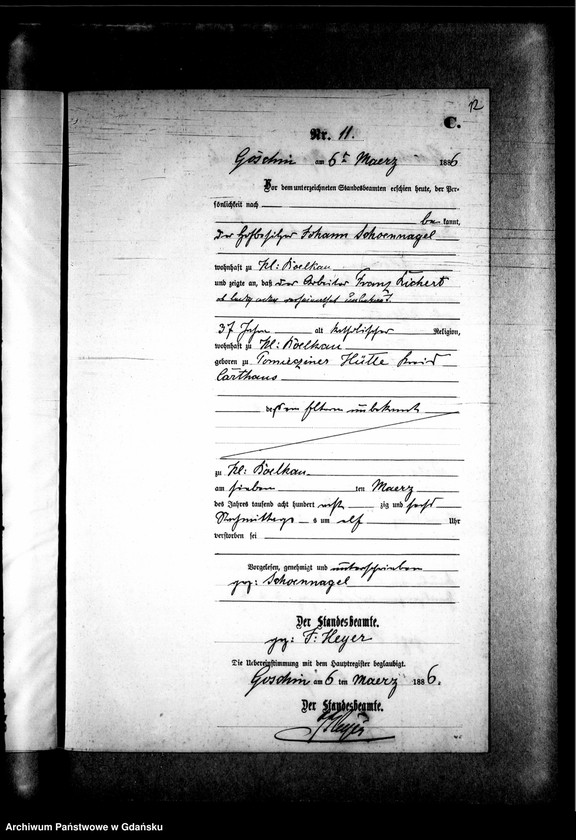 12
C.
Nr. 11.
Goschin am 6ten Maerz 1886
Vor dem unterzeichneten Standesbeamten erschien heute, der Per-
sönlichkeit nach
bekannt,
der Hofbesitzer Johann Schoennagel
wohnhaft zu Kl: Boelkau
und zeigte an, daß der Arbeiter Franz Richert
ob ledig oder unbekannt
37 Jahre alt katholischer Religion,
wohnhaft zu Kl: Boelkau
geboren zu Hütte Kreis
Carthaus
dessen Eltern unbekannt
zu Kl: Boelkau
am ten Maerz
des Jahres tausend acht hundert acht zig und sechs
Nachmittags um elf Uhr
verstorben sei
Vorgelesen, genehmigt und unterschrieben
gez: Schoennagel
Der Standesbeamte.
gez: F. Heyer
Die Uebereinstimmung mit dem Hauptregister beglaubigt.
Goschin am 6 ten Maerz 1886.
Der Standesbeamte.
Heyer
Archiwum Państwowe w Gdańsku